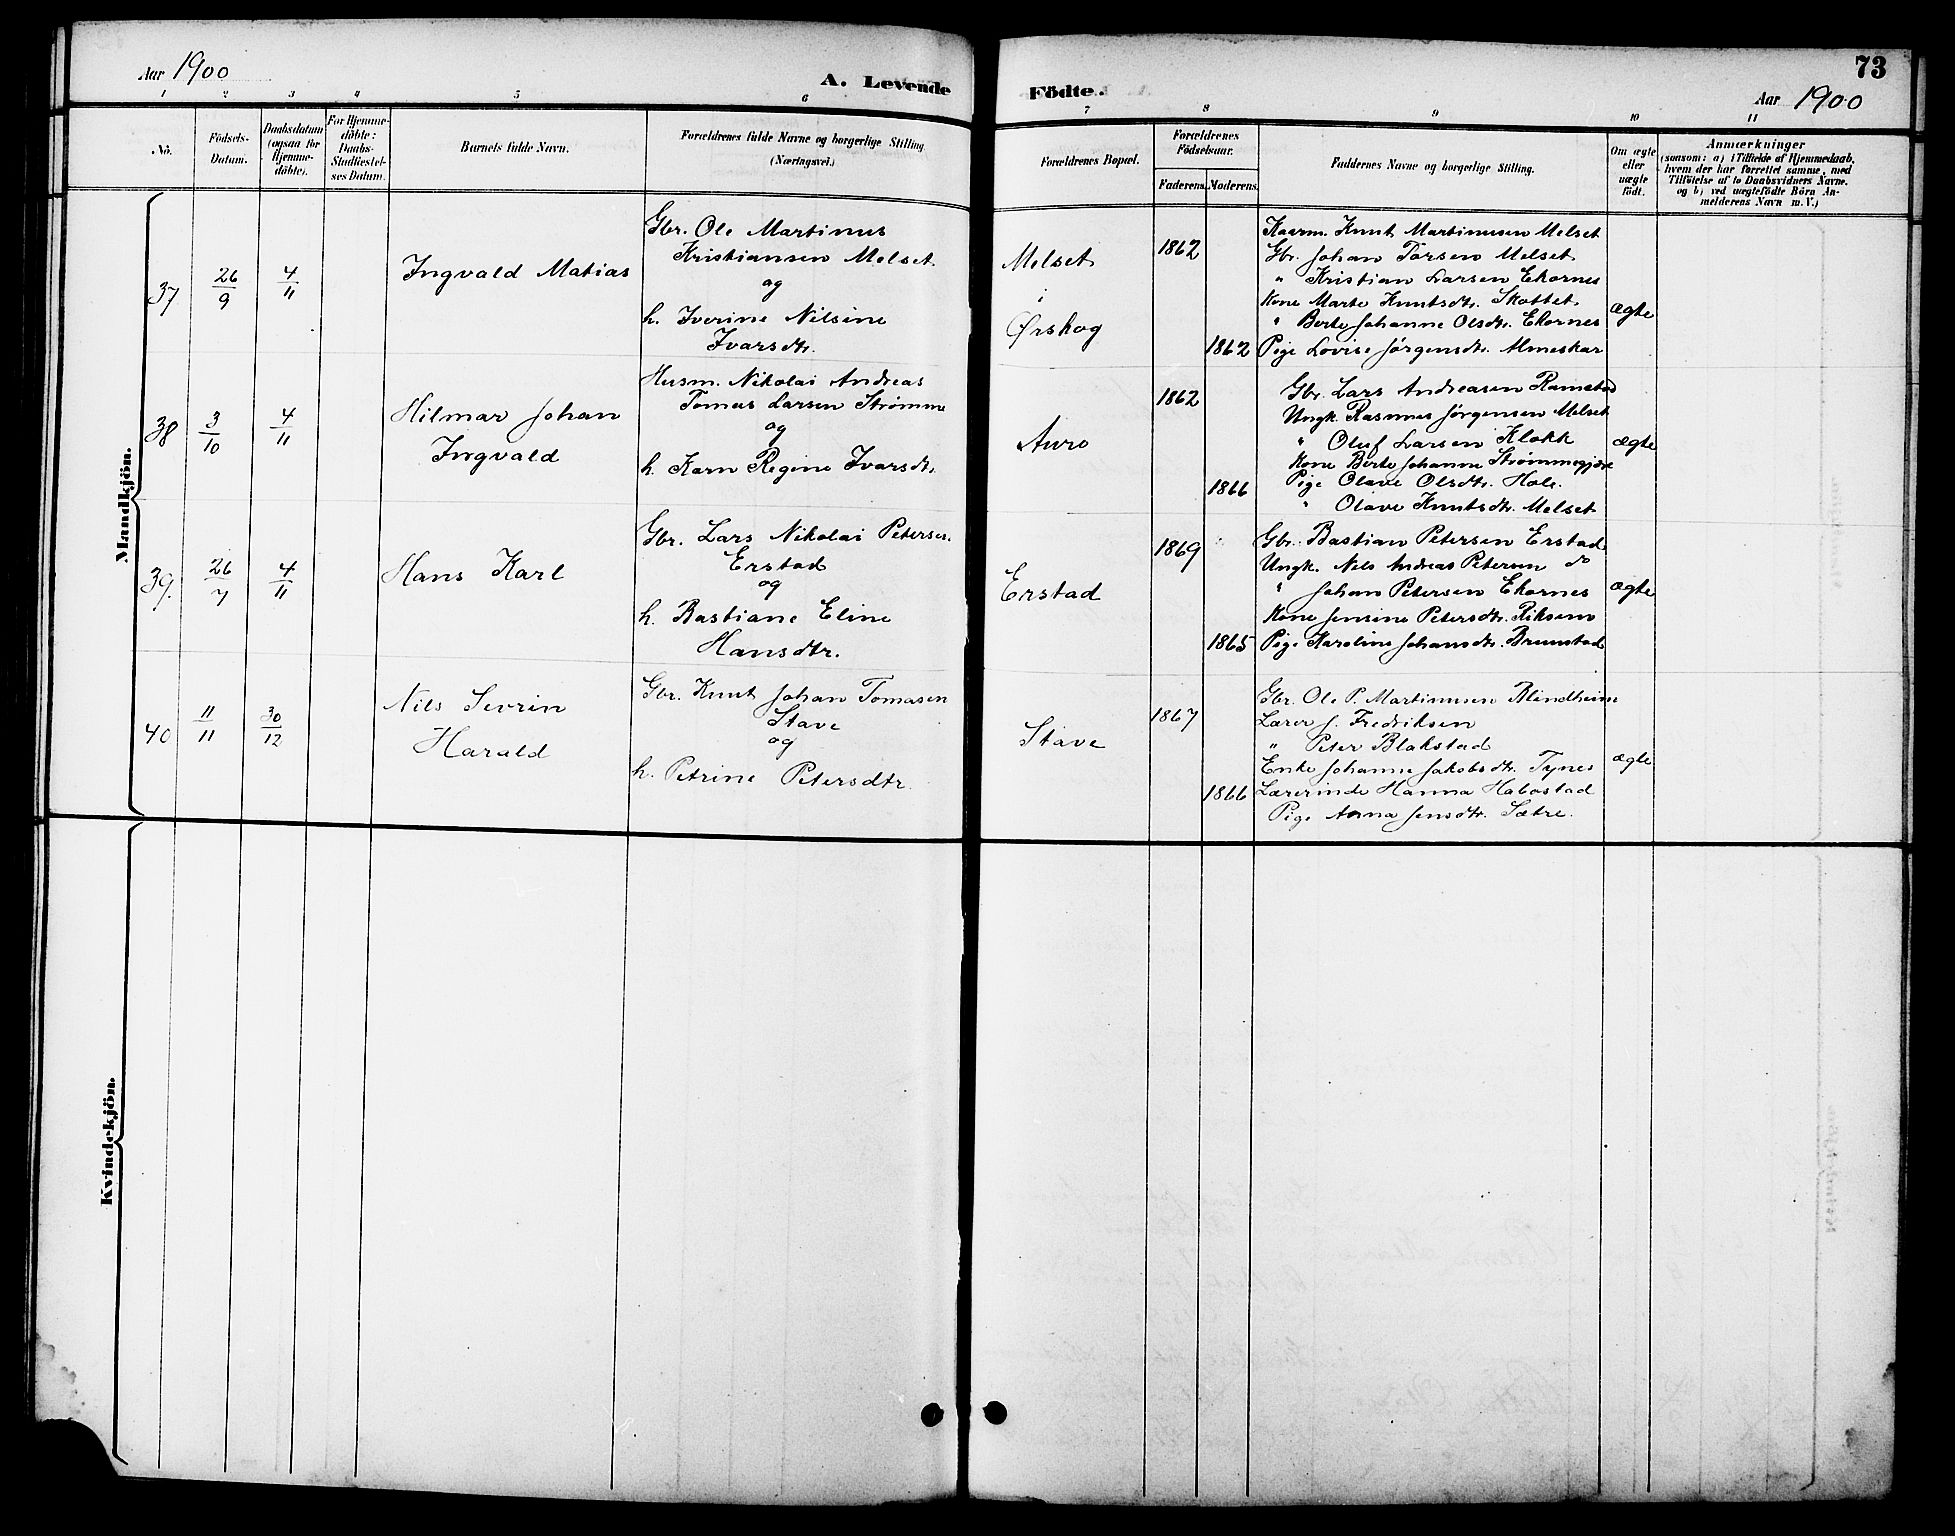 Aar 1900
A. Levende
Födte.
73
Aar 1900
1 2 3 4 5 6 7 8 9 10 11
No.
Födsels-
Datum.
Daabsdatum
(ogsaa for
Hjemme-
döbte).
For Hjemme-
döbte:
Daabs-
Stadfæstel-
ses Datum.
Barnets fulde Navn.
Forældrenes fulde Navne og borgerlige Stilling
(Næringsvei.)
Forældrenes Bopæl.
Forældrenes
Födselsaar.
Faderens. Moderens.
Faddernes Navne og borgerlige Stilling.
Om ægte
eller
uægte
födt.
Anmærkninger
(saasom: a) i Tilfælde af Hjemmedaab,
hvem der har forrettet samme, med
Tilföielse af to Daabsvidners Navne.
og b) ved uægtefödte Börn An-
melderens Navn m. V.)
Mandkjön.
37
26/9
4/11
Ingvald Matias
Gbr. Ole Martinus
Kristiansen Melset
og
h. Iverine Nilsine
Ivarsdtr.
Melset
i
Ørskog
1862
1862
Kaarm. Knut Martinusen Melset
Gbr. Johan Torsen Melset
" Kristian Larsen Ekornes
Kone Marte Knutsdtr. Skottet
" Berte Johanne Olsdtr. Ekornes
Pige Lovise Jørgensdtr. Almeskar
ægte
38
3/10
4/11
Hilmar Johan
Ingvald
Husm. Nikolai Andreas
Tomas Larsen Strømme
og
h. Karn Regine Ivarsdtr.
Auro
1862
1866
Gbr. Lars Andreasen Ramstad
Ungk. Rasmus Jørgensen Melset
" Oluf Larsen Klokk
Kone Berte Johanne Strømmegjære
Pige Olave Olsdtr. Hole.
" Olave Knutsdtr. Melset
ægte
39.
26/7
4/11
Hans Karl
Gbr. Lars Nikolai Petersen
Erstad
og
h. Bastiane Eline
Hansdtr.
Erstad
1869
1865
Gbr. Bastian Petersen Erstad
Ungk. Nils Andreas Petersen do
" Johan Petersen Ekornes
Kone Jensine Petersdtr. Riksem
Pige Karoline Johansdtr. Brunstad
ægte
40
11/11
30/12
Nils Sevrin
Harald
Gbr. Knut Johan Tomasen
Stave
og
h. Petrine Petersdtr.
Stave
1867
1866
Gbr. Ole P. Martinusen Blindheim
Lærer J. Fredriksen
" Peter Blakstad
Enke Johanne Jakobsdtr. Tynes
Lærerinde Hanna Habostad
Pige Anna Jensdtr. Sætre.
ægte
Kvindekjön.